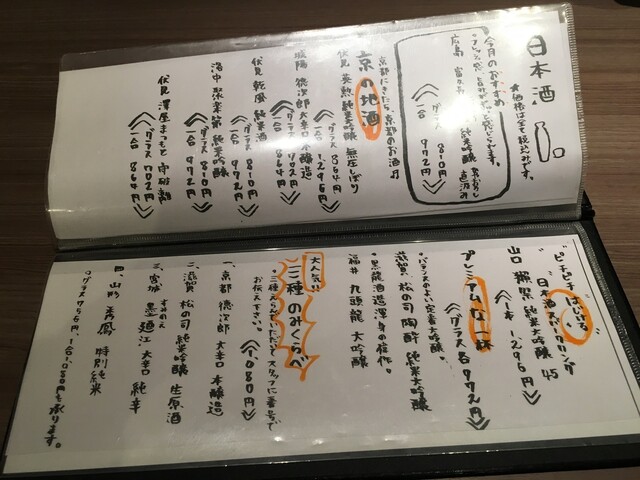 日本酒
★価格は全て税込みです。
今月のおすすめ
広島 富久長 純米吟醸 直汲み
グラス 810円
一合 972円
京都にきたら、京都のお酒♪
京の地酒
伏見 英勲 純米吟醸 無圧しぼり
グラス 864円
一合 1,296円
城陽 徳次郎 大辛口 本醸造
グラス 702円
一合 864円
伏見 乾風 純米酒
グラス 810円
一合 972円
洛中 聚楽第 純米吟醸
グラス 810円
一合 972円
伏見 澤屋まつもと 守破離
グラス 702円
一合 864円
ピチピチはじける
日本酒スパークリング
山口 獺祭 純米大吟醸 45
一本 1,296円
プレミアムな一杯
グラス各972円
・バランスのよい定番大吟醸。
滋賀 松の司 陶酔 純米大吟醸
・黒龍酒造渾身の佳作。
福井 九頭龍 大吟醸
大人気!!
三種のみくらべ
・三種えらんでいただいてスタッフに番号で
お伝え下さい。
1,080円
一、京都 徳次郎 大辛口 本醸造
二、滋賀 松の司 純米吟醸 生原酒
三、宮城 墨廼江 大辛口 純辛
すみのえ
四、山形 秀鳳 特別純米
○グラス756円、1合1,080円も承ります。